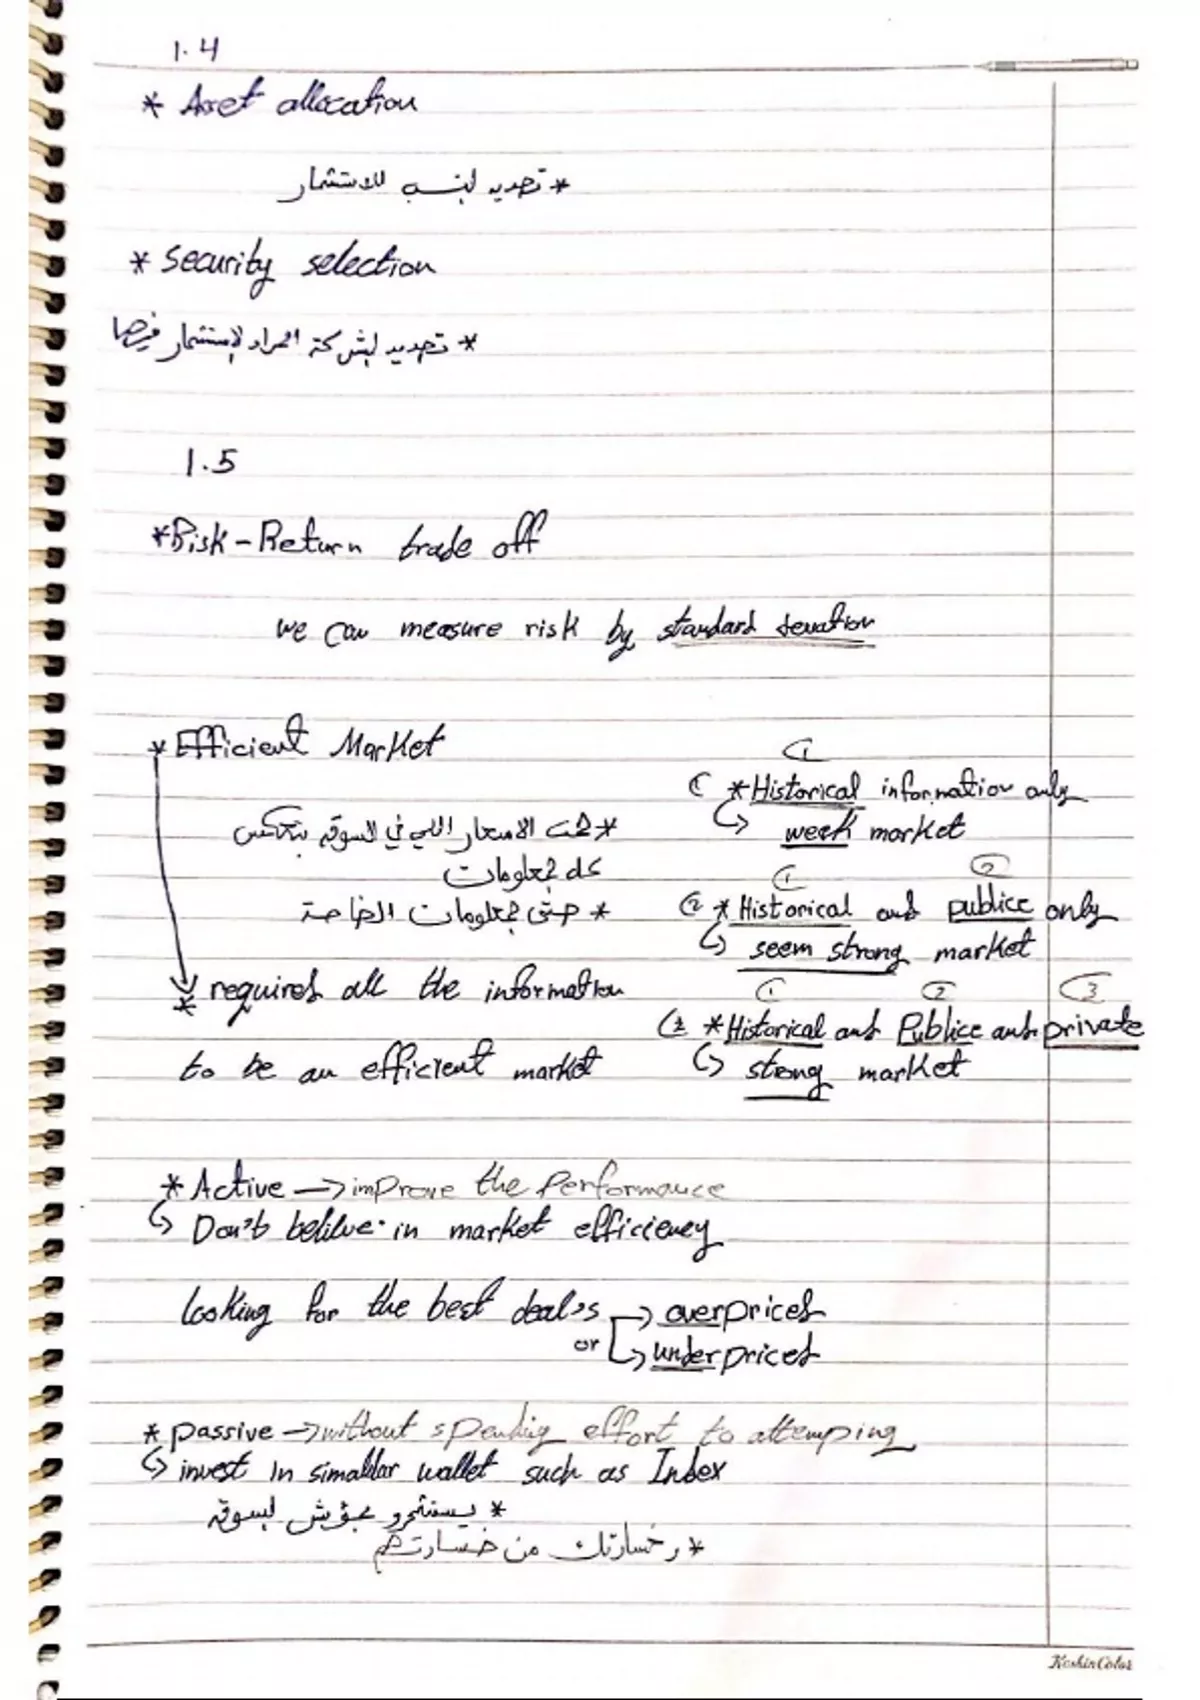 1.4
* Asset allocation
* تحديد لنسب للاستثمار
* Security selection
* تحديد لشركة المراد لإستثمار فيها
1.5
* Risk - Return trade off
we can measure risk by standard devation
* Efficient Market
* الاسعار اللي في السوق بتعكس
كل لمعلومات
* حتى لمعلومات الخاصة
* required all the information
to be an efficient market
1
1 * Historical information only
week market
1 2
2 * Historical and publice only
seem strong market
1 2 3
3 * Historical and Publice and private
strong market
* Active → improve the Performance
Don't belilve in market efficiency
looking for the best deals → overpriced
or → underpriced
* passive → without spending effort to attemping
invest in simaldar wallet such as Index
* يستثمرو بمؤشر لسوق
* وخسارتك من خسارتهم
KoshinColor